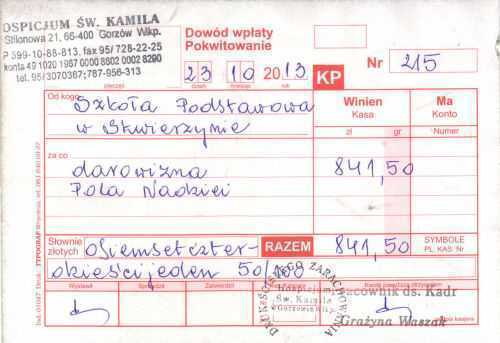 OSPICJUM ŚW. KAMILA
Stilonowa 21, 66-400 Gorzów Wlkp.
P 599-10-86-813, fax 95/ 728-22-25
konta 49 1020 1967 0000 8802 0002 8290
tel. 95/ 3070367; 787-956-313
Dowód wpłaty
Pokwitowanie
23 10 2013 KP Nr 215
Od kogo Szkoła Podstawowa
w Skwierzynie
Winien Ma
Kasa Konto
zł gr Numer
za co
darowizna 841,50
Pola Nadziei
Słownie złotych osiemsetczter- RAZEM 841,50 SYMBOLE
dzieścijeden 50/100 PL. KAS. Nr
Wystawił Sprawdził Zatwierdził
Hospicjum
Św. Kamila
w Gorzowie Wlkp.
DRUK ŚCISŁEGO ZARACHOWANIA
Pracownik ds. Kadr
Grażyna Waszak